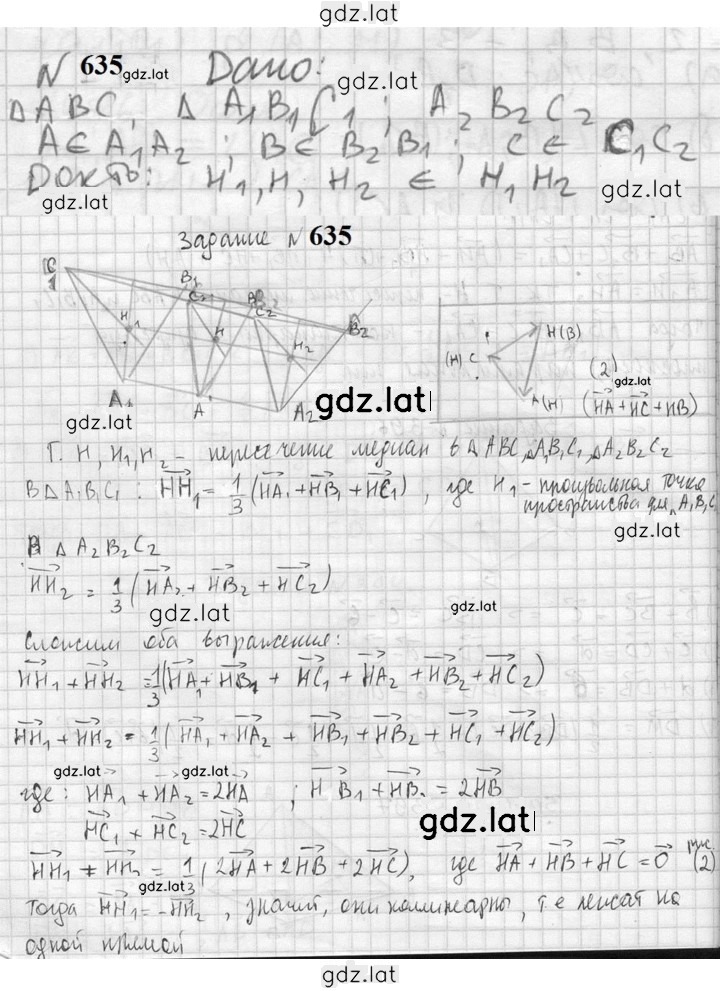 gdz.lat
N 635 gdz.lat Дано: gdz.lat
△ABC, △ A1B1C1; A2B2C2
A∈A1A2; B∈B2B1; C∈C1C2
Докть: H1, H, H2 ∈ H1H2
gdz.lat gdz.lat
Задание N 635
C1 B1 C A B C2 B2
H1 H H2
A1 A A2
gdz.lat
(H) C H(B) A(H)
(2)
gdz.lat
(HA+HC+HB)
Т. H, H1, H2 - пересечение медиан в △ABC, △A1B1C1, △A2B2C2
В △A1B1C1: HH1 = 1/3 (HA1+HB1+HC1), где H1 - произвольная точка
пространства для △A1B1C1
gdz.lat
В △A2B2C2
HH2 = 1/3 (HA2 + HB2 + HC2)
gdz.lat gdz.lat
Сложим оба выражения:
HH1 + HH2 = 1/3 (HA1 + HB1 + HC1 + HA2 + HB2 + HC2)
HH1 + HH2 = 1/3 (HA1 + HA2 + HB1 + HB2 + HC1 + HC2)
gdz.lat gdz.lat
где: HA1 + HA2 = 2HA; HB1 + HB2 = 2HB
HC1 + HC2 = 2HC
gdz.lat
HH1 + HH2 = 1/3 (2HA + 2HB + 2HC), где HA + HB + HC = 0 рис. (2)
gdz.lat
Тогда HH1 = -HH2, значит, они коллинеарны, т.е лежат на
одной прямой
gdz.lat